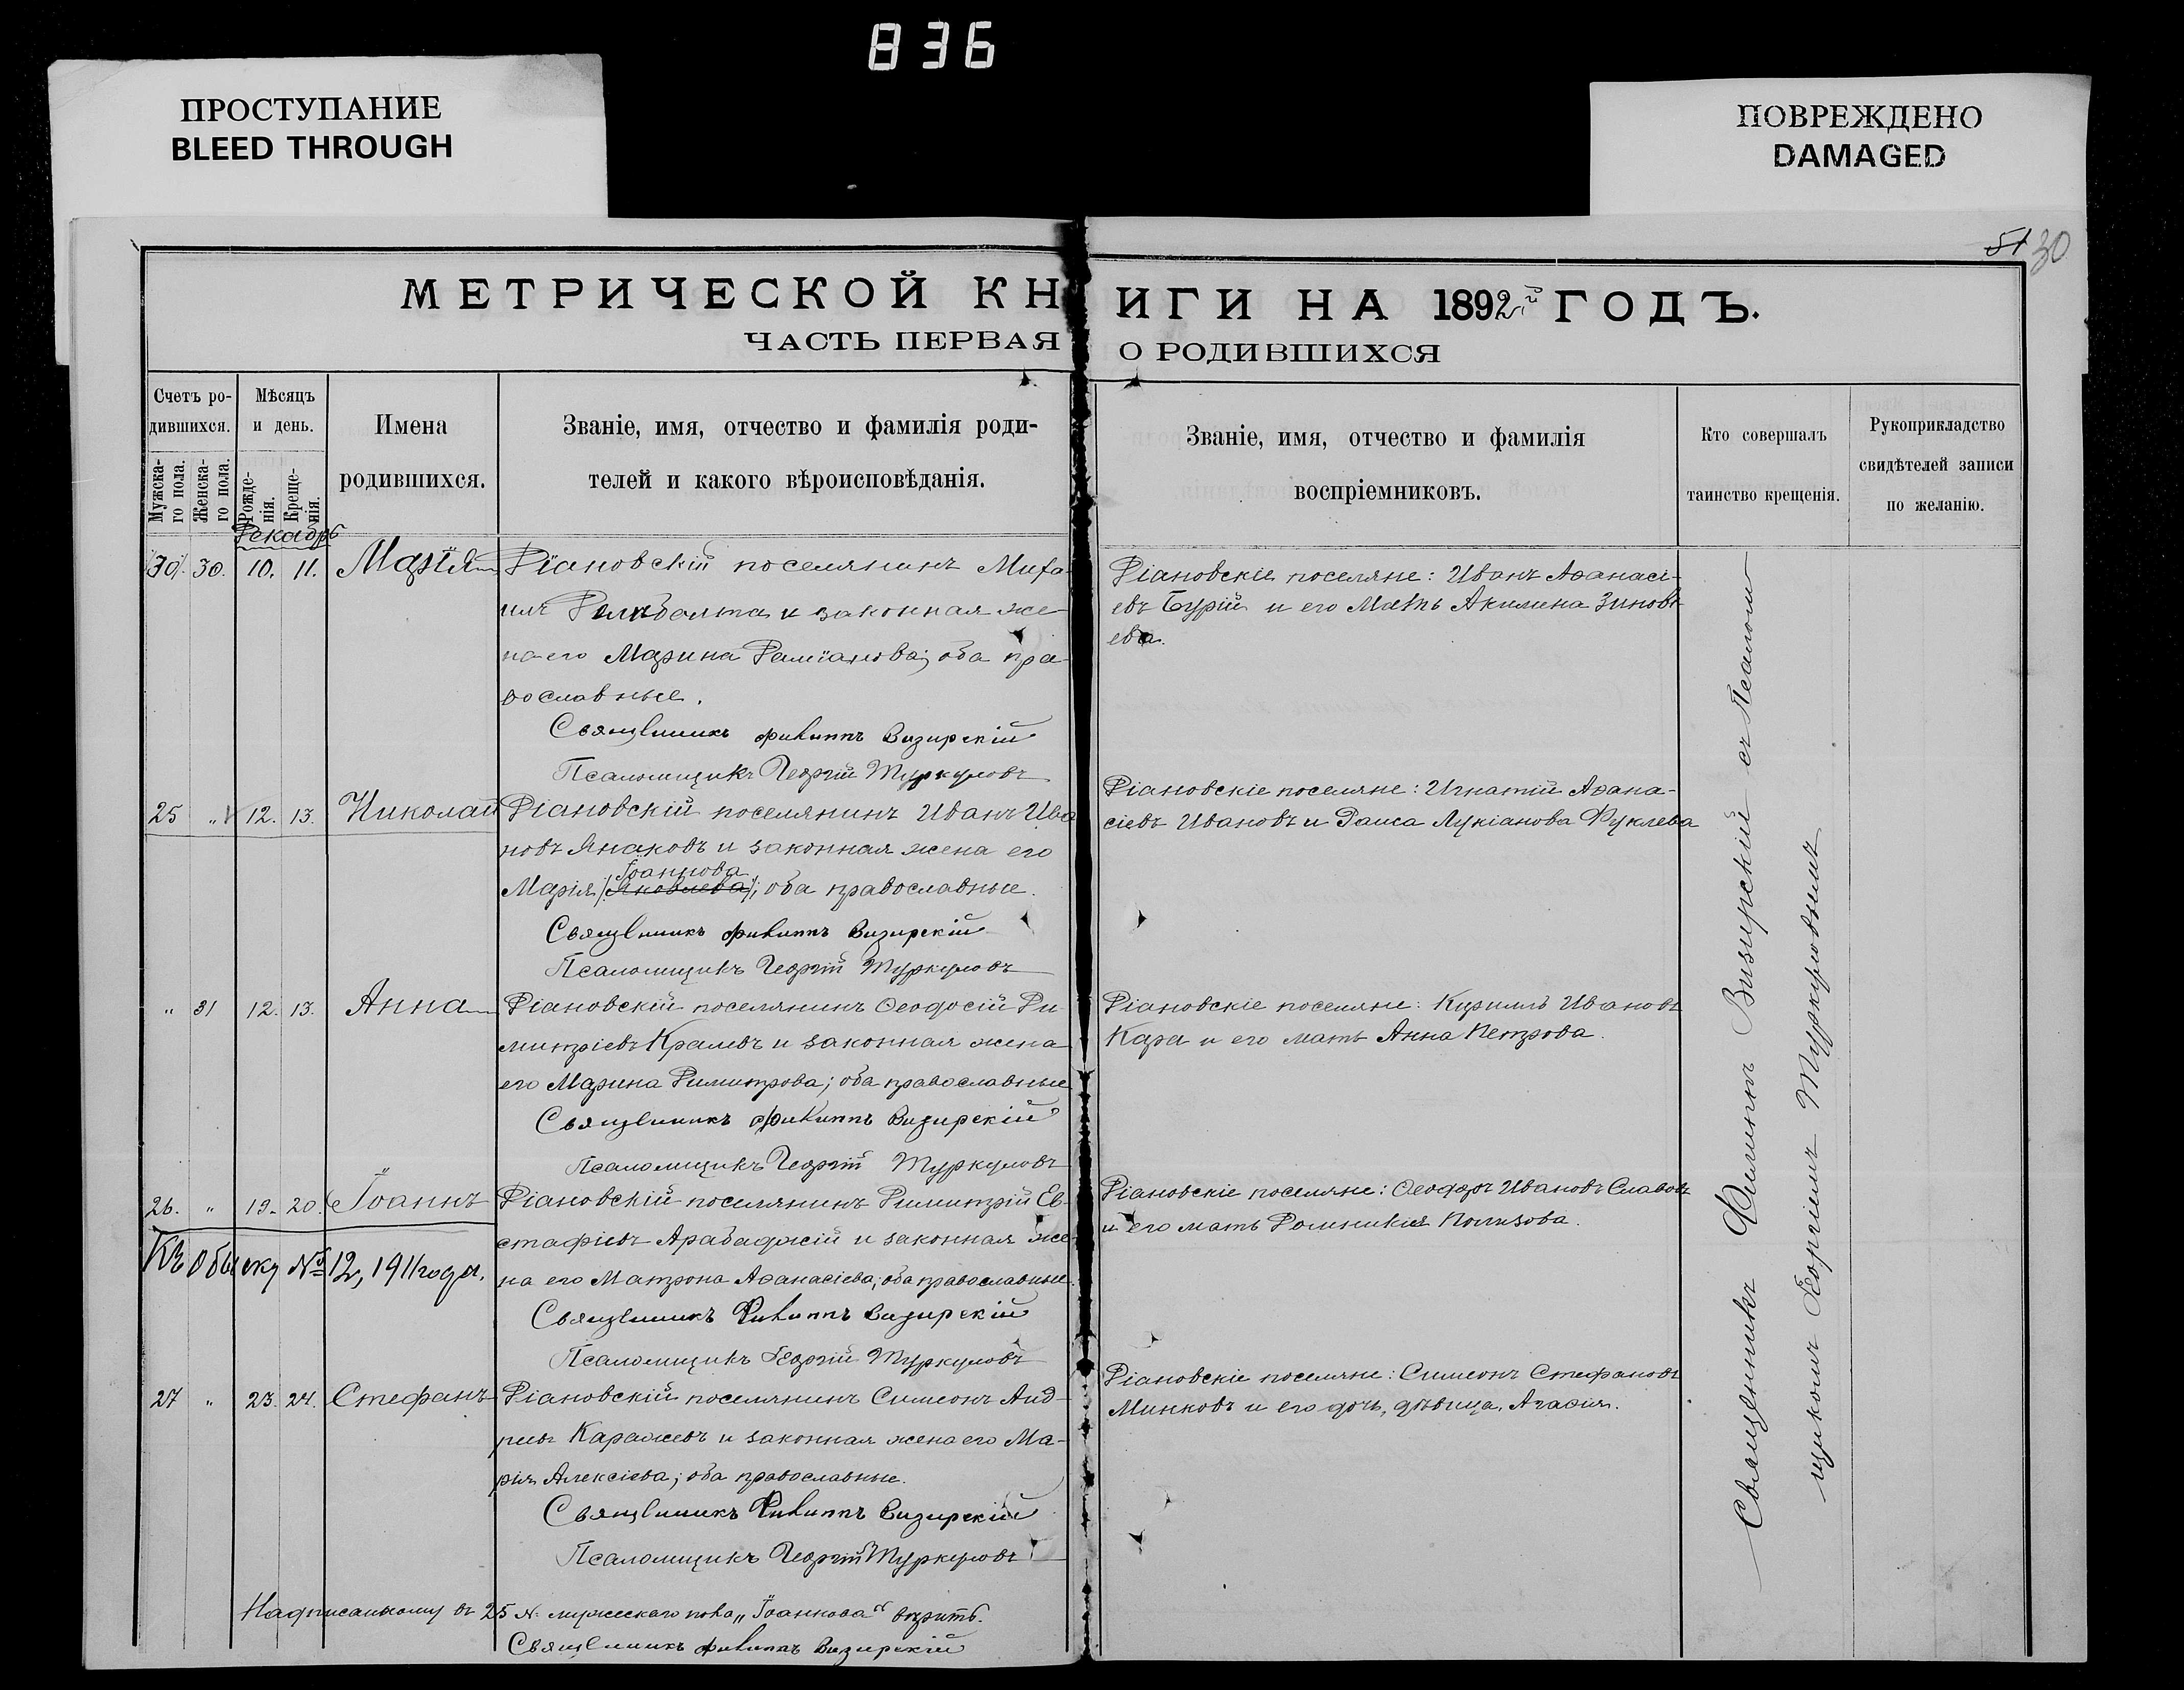 836
ПРОСТУПАНИЕ
BLEED THROUGH
ПОВРЕЖДЕНО
DAMAGED
51 30
МЕТРИЧЕСКОЙ КНИГИ НА 1892й ГОДЪ.
ЧАСТЬ ПЕРВАЯ О РОДИВШИХСЯ
Счетъ ро-
дившихся.
Мужска-
го пола.
Женска-
го пола.
Мѣсяцъ
и день.
Рожде-
нія.
Креще-
нія.
Имена
родившихся.
Званіе, имя, отчество и фамилія роди-
телей и какого вѣроисповѣданія.
Званіе, имя, отчество и фамилія
воспріемниковъ.
Кто совершалъ
таинство крещенія.
Рукоприкладство
свидѣтелей записи
по желанію.
Декабрь
30. 10. 11. Марія Діановскій поселянинъ Миха-
илъ и законная же-
на его Марина Даміанова; оба пра-
вославные.
Священникъ Филиппъ Визирскій
Псаломщикъ Георгій Туркуловъ
Діановскіе поселяне: Иванъ Аѳанасі-
евъ Бурій и его мать Акилина Зиновь-
ева.
25 „ 12. 13. Николай Діановскій поселянинъ Иванъ Ива
новъ Янаковъ и законная жена его
Іоаннова
Марія Яковлева; оба православные.
Священникъ Филиппъ Визирскій
Псаломщикъ Георгій Туркуловъ
Діановскіе поселяне: Игнатій Аѳана-
сіевъ Ивановъ и Раиса Лукіанова Фуклева
„ 31 12. 13. Анна Діановскій поселянинъ Ѳеодосій Ди-
митріевъ Кралевъ и законная жена
его Марина Димитрова; оба православные
Священникъ Филиппъ Визирскій
Псаломщикъ Георгій Туркуловъ
Діановскіе поселяне: Кириллъ Ивановъ
Кара и его мать Анна Петрова.
26. „ 19. 20. Іоаннъ Діановскій поселянинъ Димитрій Ев-
стафіевъ Арабаджій и законная же-
на его Матрона Аѳанасіева; оба православные.
Священникъ Филиппъ Визирскій
Псаломщикъ Георгій Туркуловъ
Діановскіе поселяне: Ѳеодоръ Ивановъ Славовъ
и его мать Домникія
Къ обыску № 12, 1911 года.
27 „ 23. 24. Стефанъ Діановскій поселянинъ Симеонъ Анд-
реевъ и законная жена его Ма-
рія Алексіева; оба православные.
Священникъ Филиппъ Визирскій
Псаломщикъ Георгій Туркуловъ
Діановскіе поселяне: Симеонъ Стефановъ
Минковъ и его дочь, дѣвица, Агаѳія.
Надписанному въ 25 №. мужескаго пола „Іоаннова“ вѣрить.
Священникъ Филиппъ Визирскій
Священникъ Филиппъ Визирскій съ Псалом-
щикомъ Георгіемъ Туркуловымъ